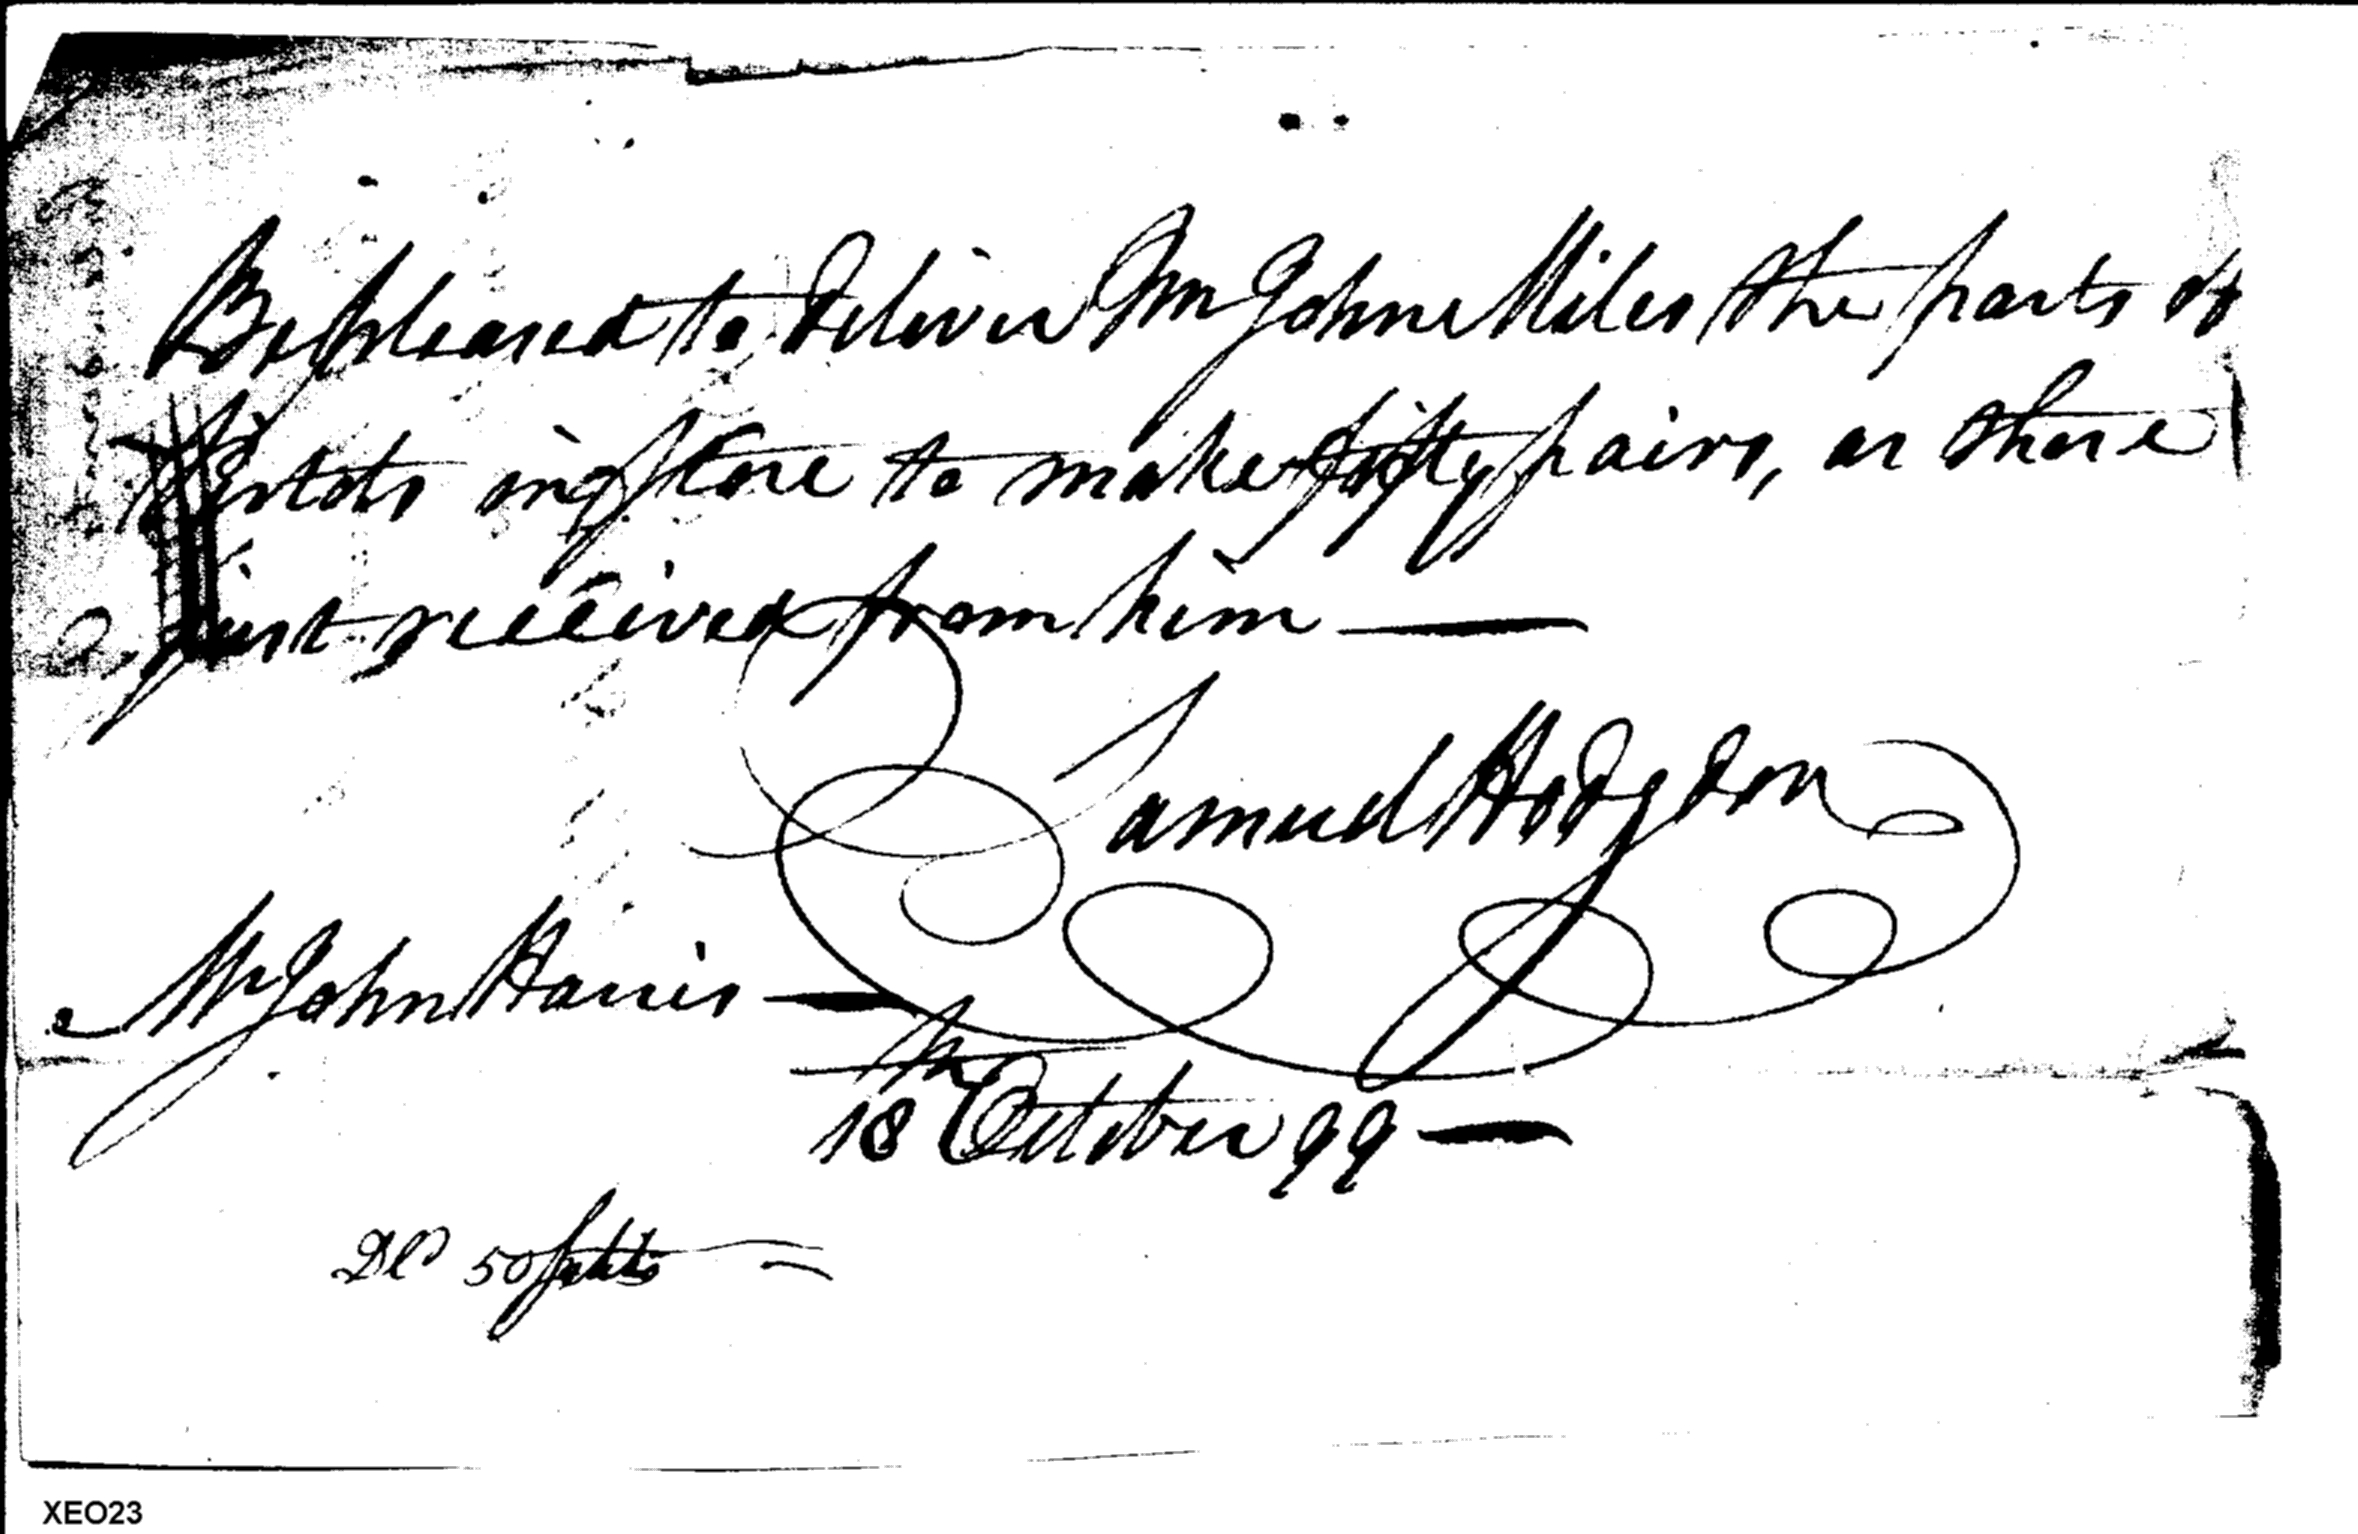 Be pleased to deliver Mr John Miles the parts of
Pistols in store to make fifty pairs, as those
just received from him —
Samuel Hodgdon
Mr John Harris —
18th October 99 —
Dld 50 pistols
XEO23